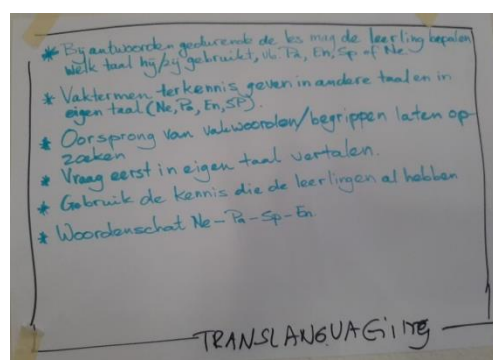 * Bij antwoorden gedurende de les mag de leerling bepalen
welk taal hij/zij gebruikt, vb. Pa, En, Sp of Ne.
* Vaktermen ter kennis geven in andere taal en in
eigen taal (Ne, Pa, En, SP).
* Oorsprong van vakwoorden/begrippen laten op-
zoeken
* Vraag eerst in eigen taal vertalen.
* Gebruik de kennis die de leerlingen al hebben
* Woordenschat Ne-Pa-Sp-En.
TRANSLANGUAGiNG